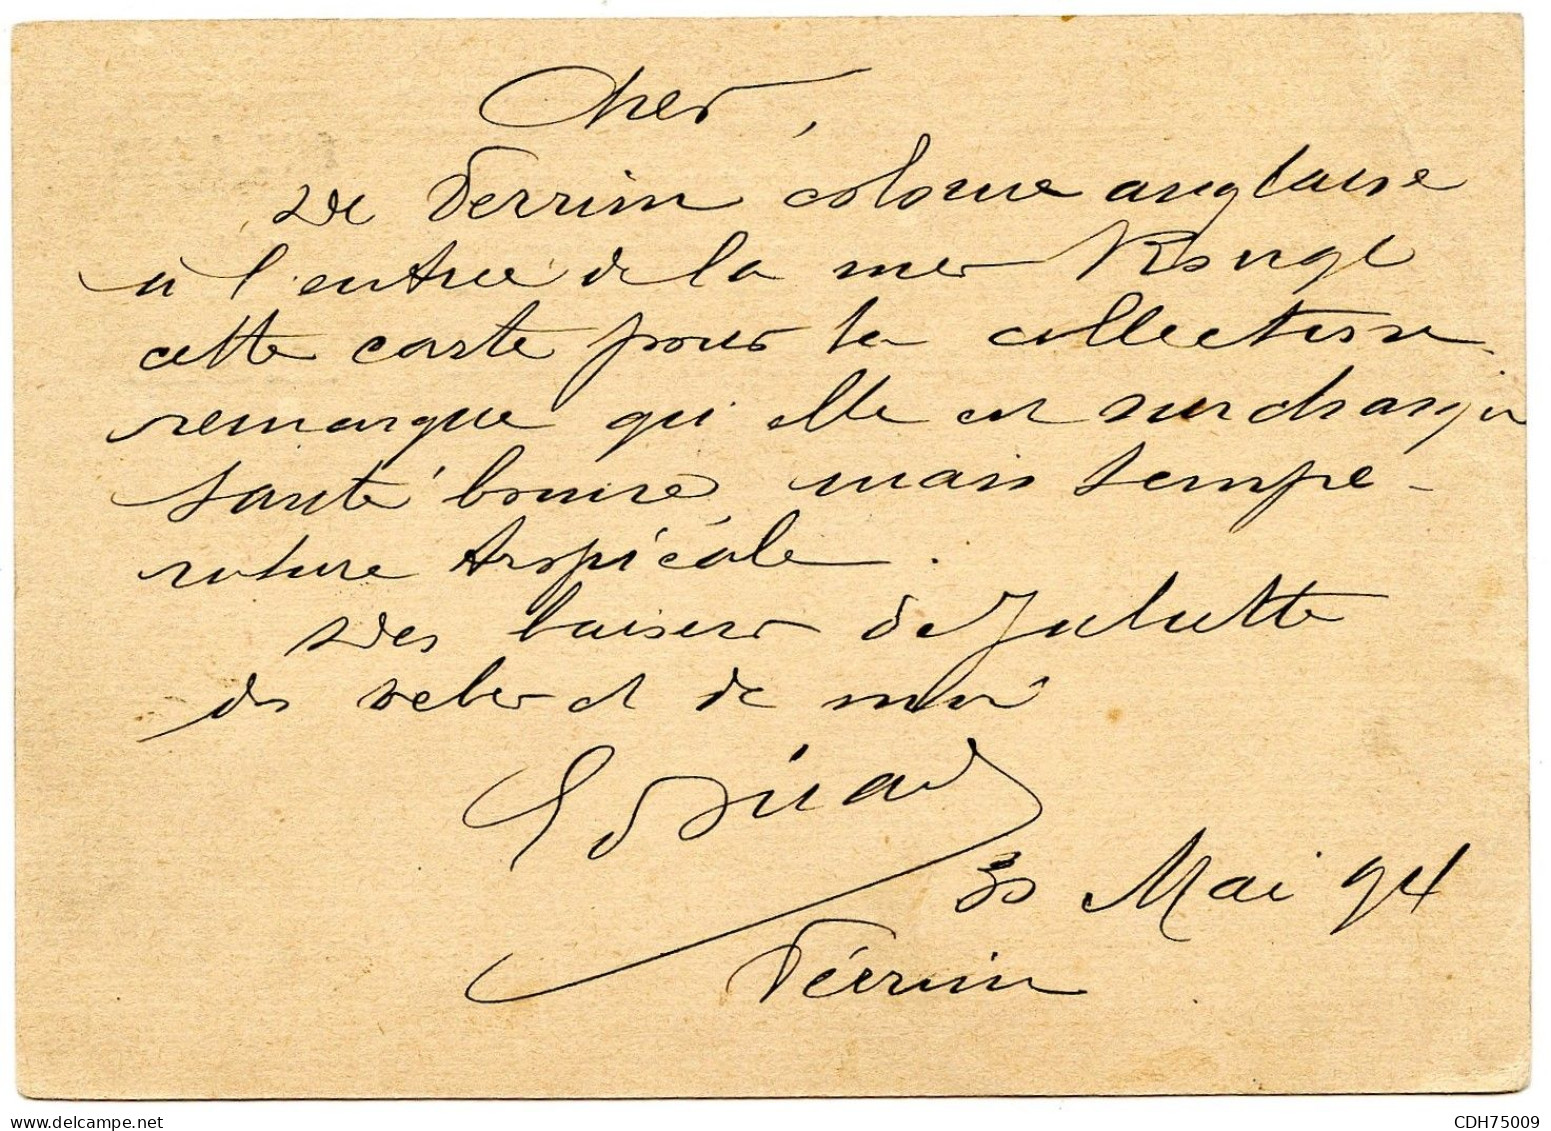 Cher,
De Perrim colonie anglaise
à l'entrée de la mer Rouge
cette carte pour ta collection
remarque qu'elle est surchargée
santé bonne, mais tempé-
rature tropicale.
Des baisers de Juliette
des et de moi
Edouard
30 Mai 94
Périm
CDH75009